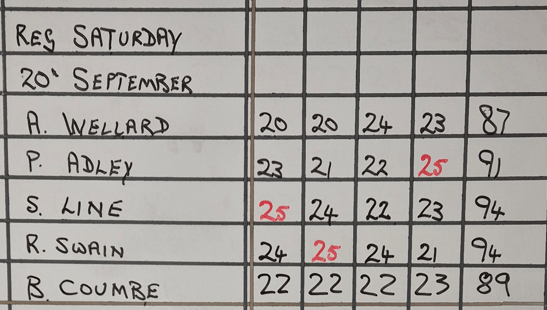 REG SATURDAY
20' SEPTEMBER
A. WELLARD 20 20 24 23 87
P. ADLEY 23 21 22 25 91
S. LINE 25 24 22 23 94
R. SWAIN 24 25 24 21 94
B. COUMBE 22 22 22 23 89